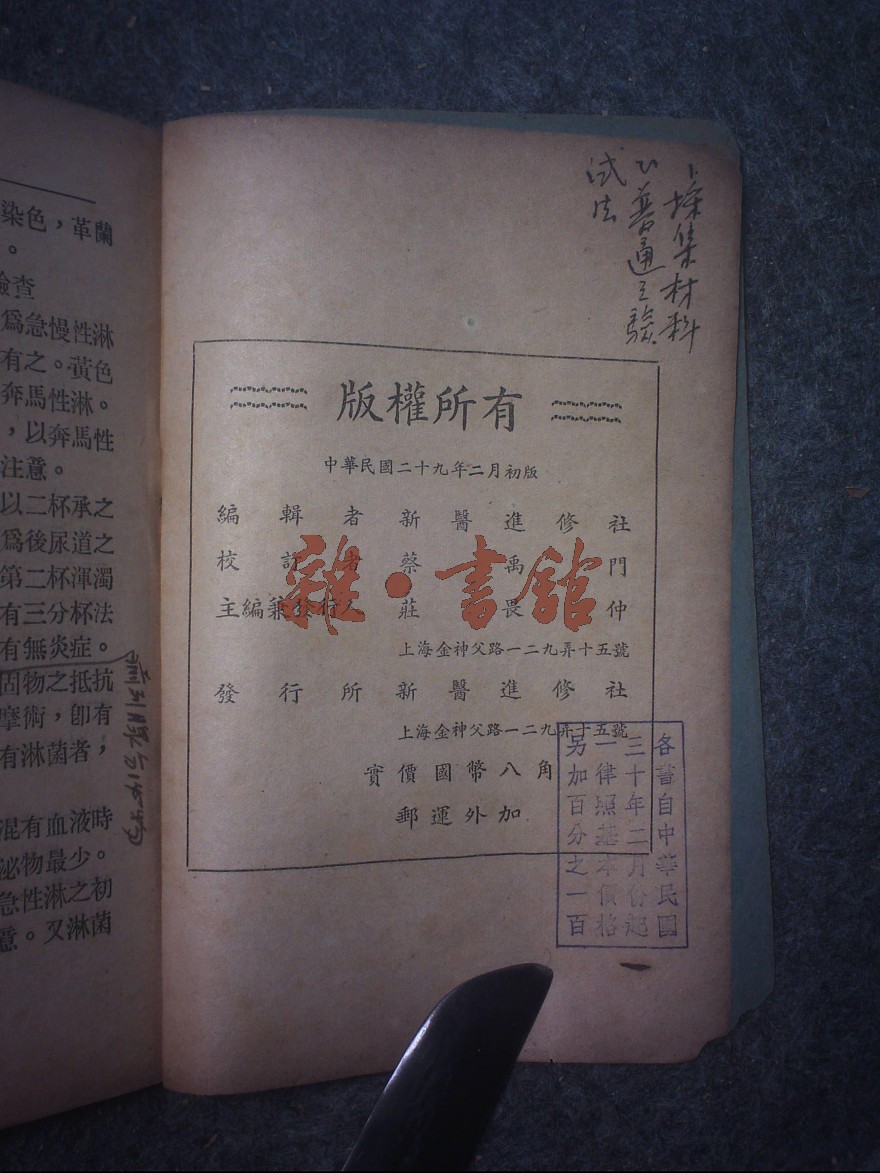 染色，革蘭
。
檢查
爲急慢性淋
有之。黃色
奔馬性淋。
，以奔馬性
注意。
以二杯承之
爲後尿道之
第二杯渾濁
有三分杯法
有無炎症。
固物之抵抗
摩術，卽有
有淋菌者，
混有血液時
泌物最少。
急性淋之初
意。又淋菌
採集材料
普通
試法
版權所有
中華民國二十九年二月初版
編輯者 新醫進修社
校訂者 蔡禹門
主編兼發行人 莊畏仲
上海金神父路一二九弄十五號
發行所 新醫進修社
上海金神父路一二九弄十五號
實價國幣八角
郵運外加
各書自中華民國
三十年二月份起
一律照基本價格
另加百分之一百
雜·書館